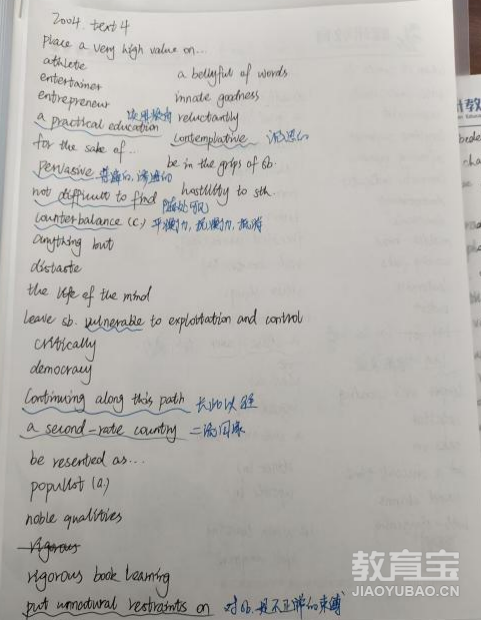 2004. text 4
place a very high value on...
athlete
a bellyful of words
entertainer
innate goodness
entrepreneur
reluctantly
a practical education 实用教育
contemplative 沉思的
for the sake of...
be in the grips of sb.
pervasive 普遍的, 渗透的
hostility to sth.
not difficult to find 随处可见
counterbalance (c) 平衡力, 抗衡力, 抵消
anything but
distaste
the life of the mind
leave sb. vulnerable to exploitation and control
critically
democracy
Continuing along this path 长此以往
a second-rate country 二流国家
be resented as...
populist (a.)
noble qualities
rigorous
rigorous book learning
put unnatural restraints on 对sb.是不正常的束缚
教育宝
JIAOYUBAO.CN